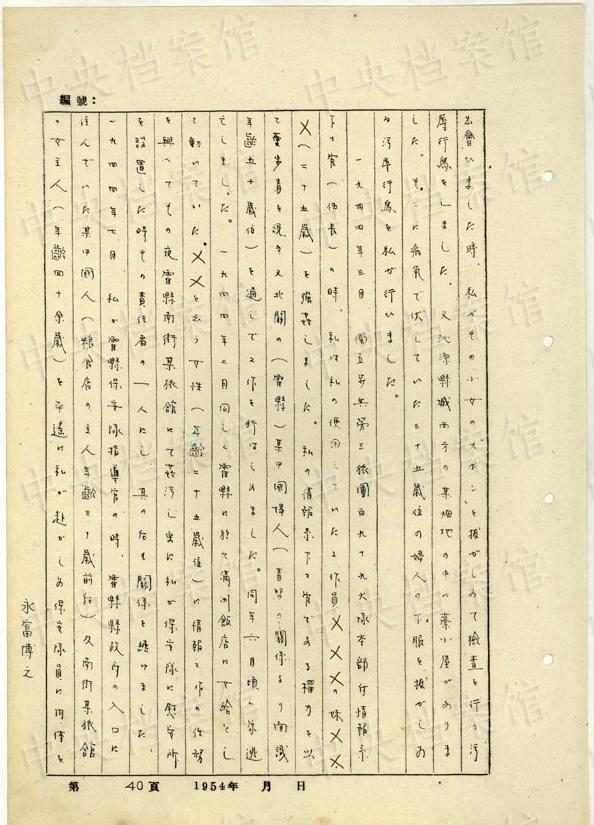 編號：
出會ひました時、私がその少女のズボンを拔がしめて檢査を行う污
辱行爲をしました。又沁源縣城西方の某畑地の中に藁小屋がありま
した。そこに病氣で伏していた三十五歲位の婦人の下服を拔がしめ
污辱行爲を私が行いました。
一九四四年三月 獨立步兵第三旅團 大隊本部付情報系
下士官（伍長）の時、私は私の使用していた工作員×××の妹××
×（二十五歲）を强姦しました。私の情報系下士官である權力を以
て 北關の（霍縣）某中國婦人（ 關係より面識
年齡五十歲位）を通して工作を行はしめました。同年六月頃
しました。一九四四年二月同じく霍縣に於て滿洲飯店に女給とし
て動いていた××と云う女性（年齡二十五歲位）に情報工作の任務
を與へてその夜霍縣南街某旅館にて姦污し更に私が保安隊に慰安所
を設置した時その責任者の一人にし、其の后も關係を續けました。
一九四四年七月 私が霍縣保安隊指導官の時、霍縣縣政府の入口に
住んでいた某中國人（糧食店の主人年齡三十歲前后）及南街某旅館
の女主人（年齡四十余歲）を平遙に私が赴かしめ保安隊員に肉体を
永富博之
第 40頁 1954年 月 日
中央档案馆